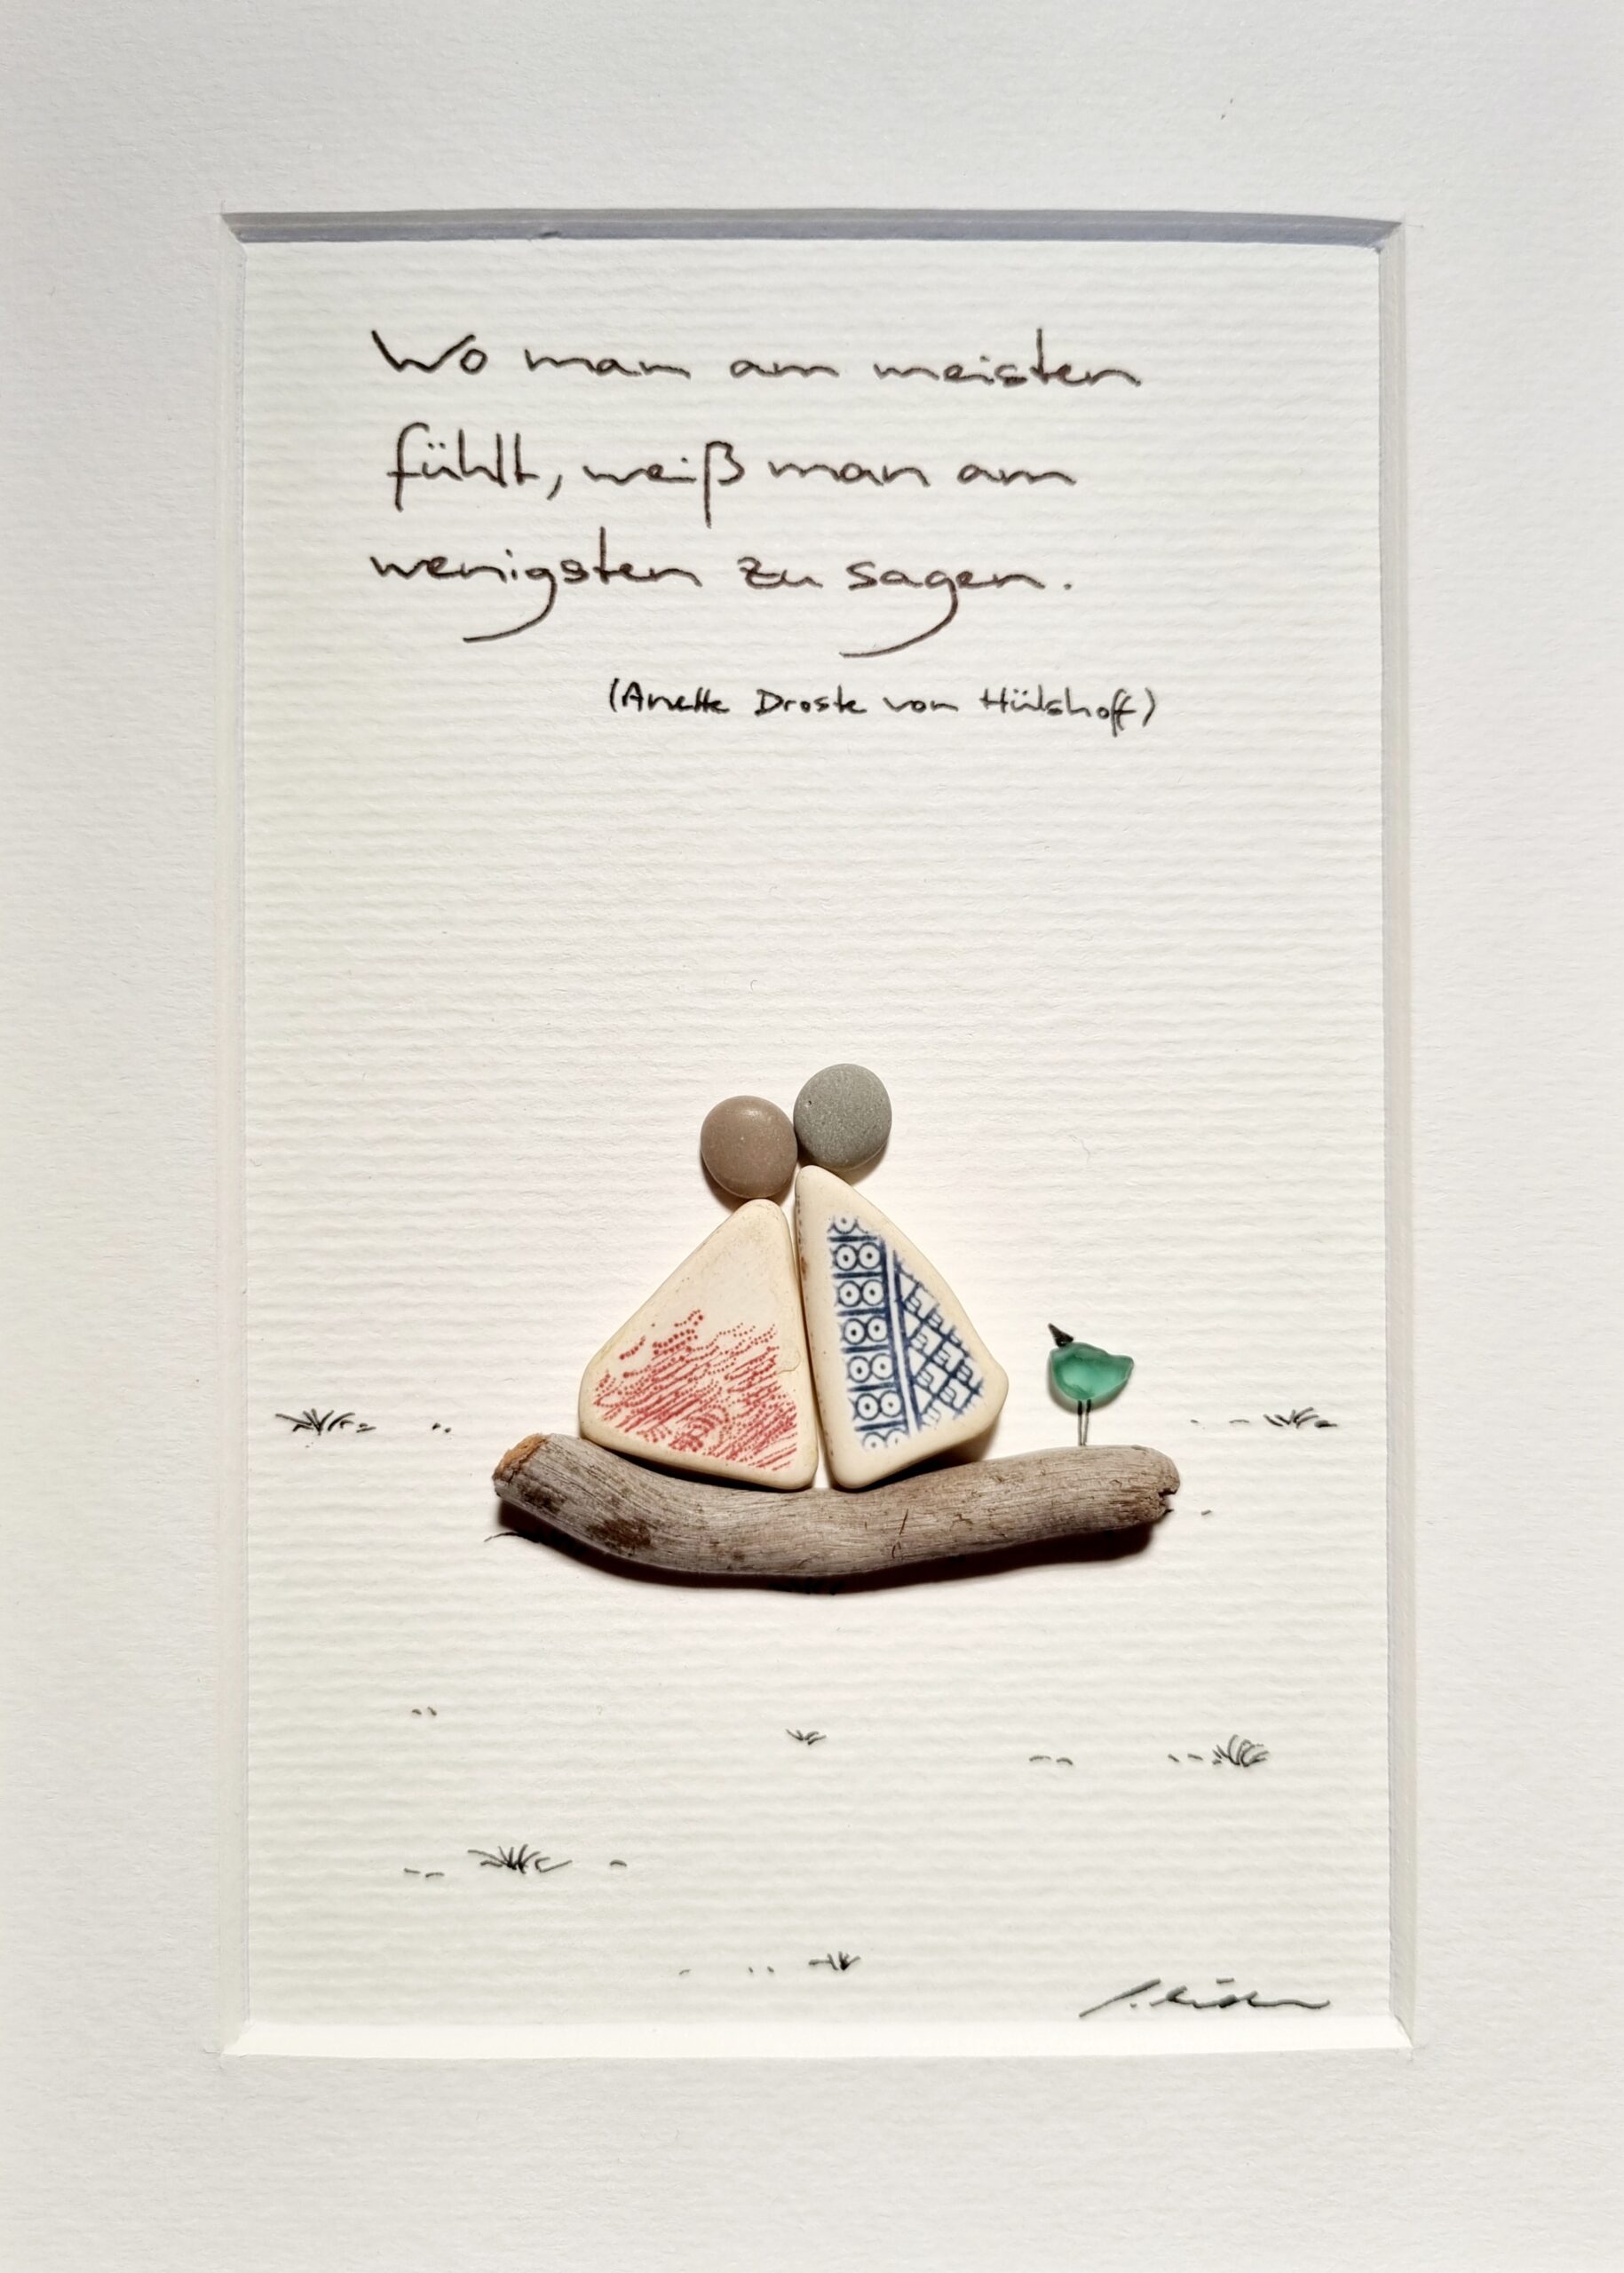 Wo man am meisten
fühlt, weiß man am
wenigsten zu sagen.
(Anette Droste von Hülshoff)